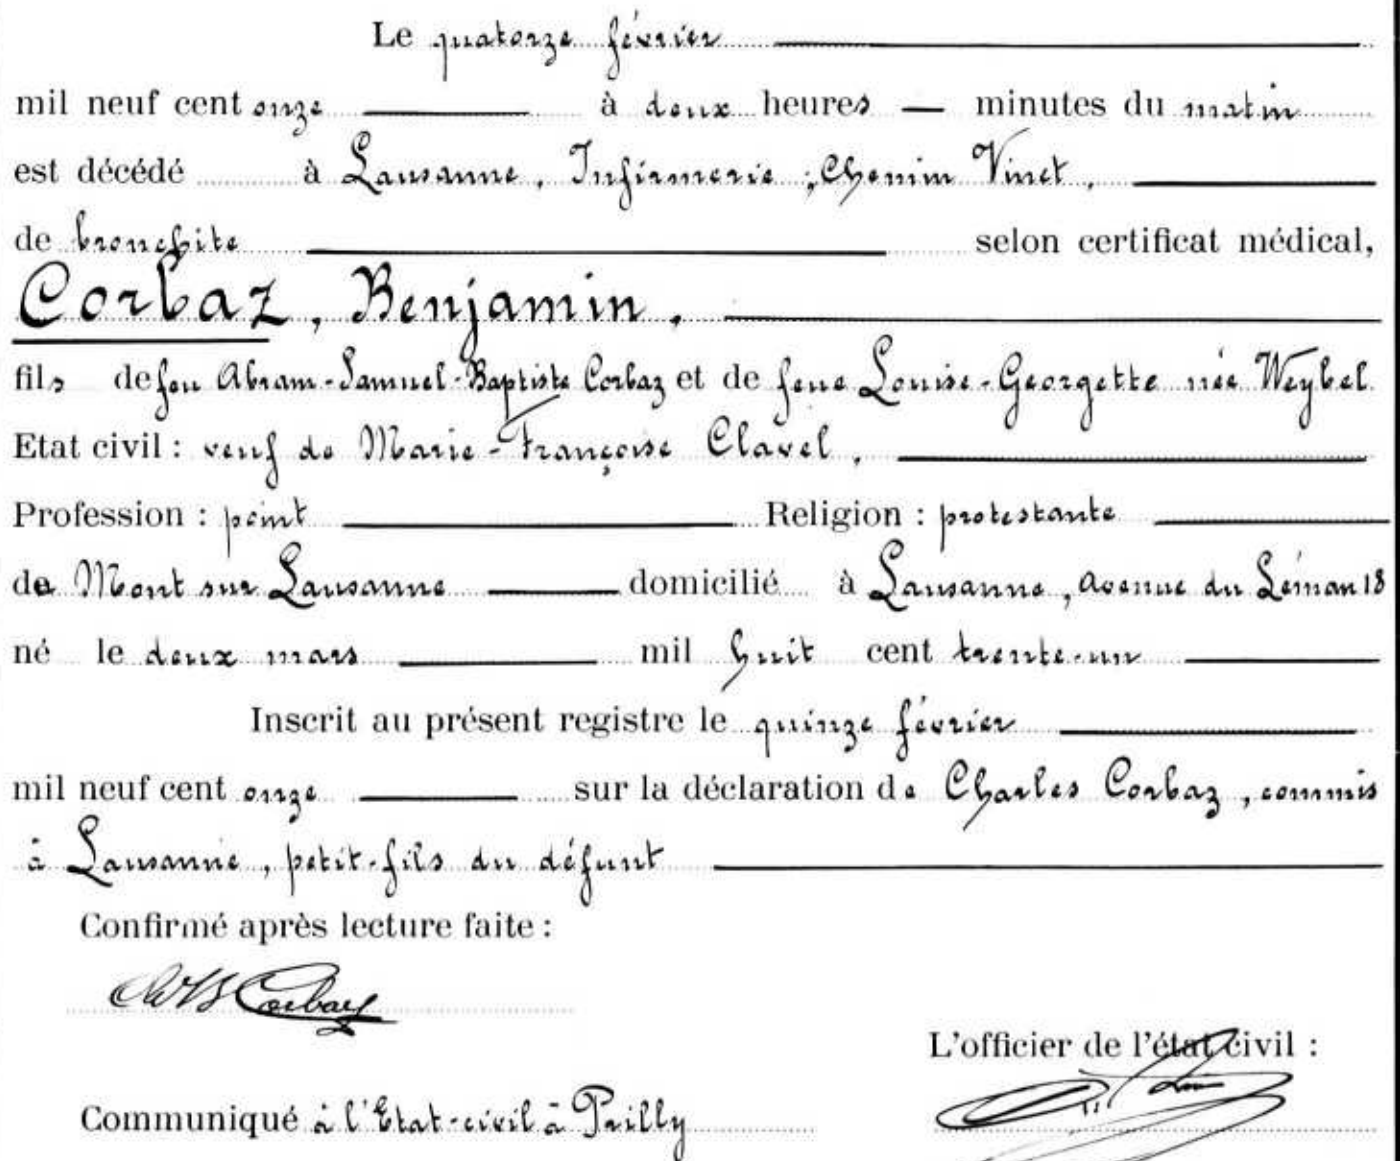 Le quatorze février
mil neuf cent onze à deux heures — minutes du matin
est décédé à Lausanne, Infirmerie, Chemin Vinet,
de bronchite selon certificat médical,
Corbaz, Benjamin,
fils de feu Abram-Samuel-Baptiste Corbaz et de feue Louise-Georgette née Weybel
Etat civil : veuf de Marie-Françoise Clavel,
Profession : point Religion : protestante
de Mont sur Lausanne domicilié à Lausanne, avenue du Léman 18
né le deux mars mil huit cent trente-un
Inscrit au présent registre le quinze février
mil neuf cent onze sur la déclaration de Charles Corbaz, commis
à Lausanne, petit-fils du défunt
Confirmé après lecture faite :
Corbaz
L'officier de l'état civil :
Communiqué à l'Etat-civil à Prilly